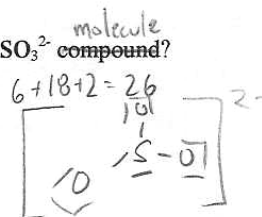 molecule
SO₃²⁻ compound?
6+18+2=26
|O|
2-
S-O|
O